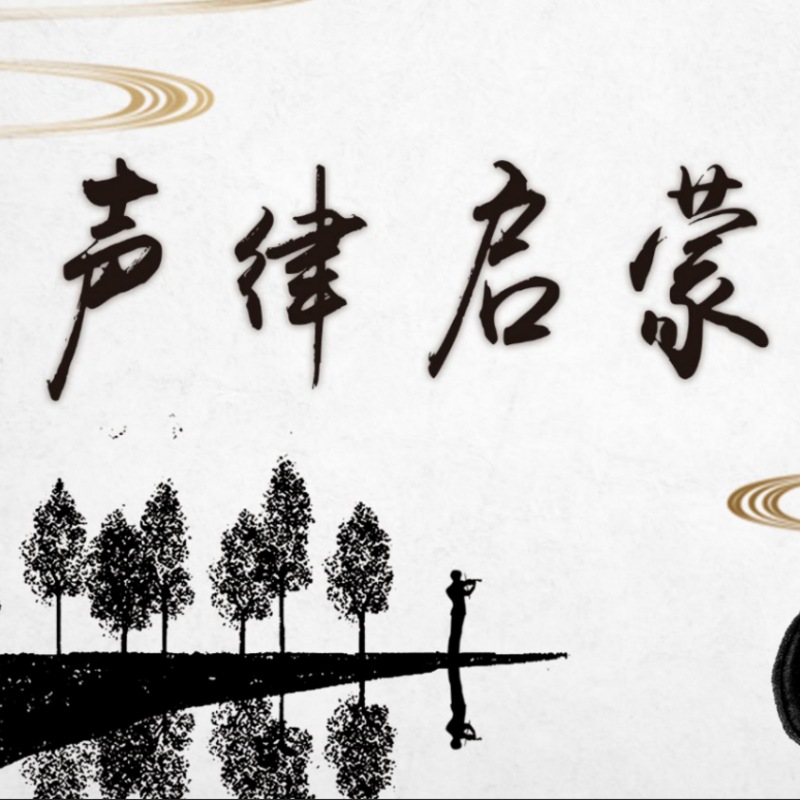 声律启蒙